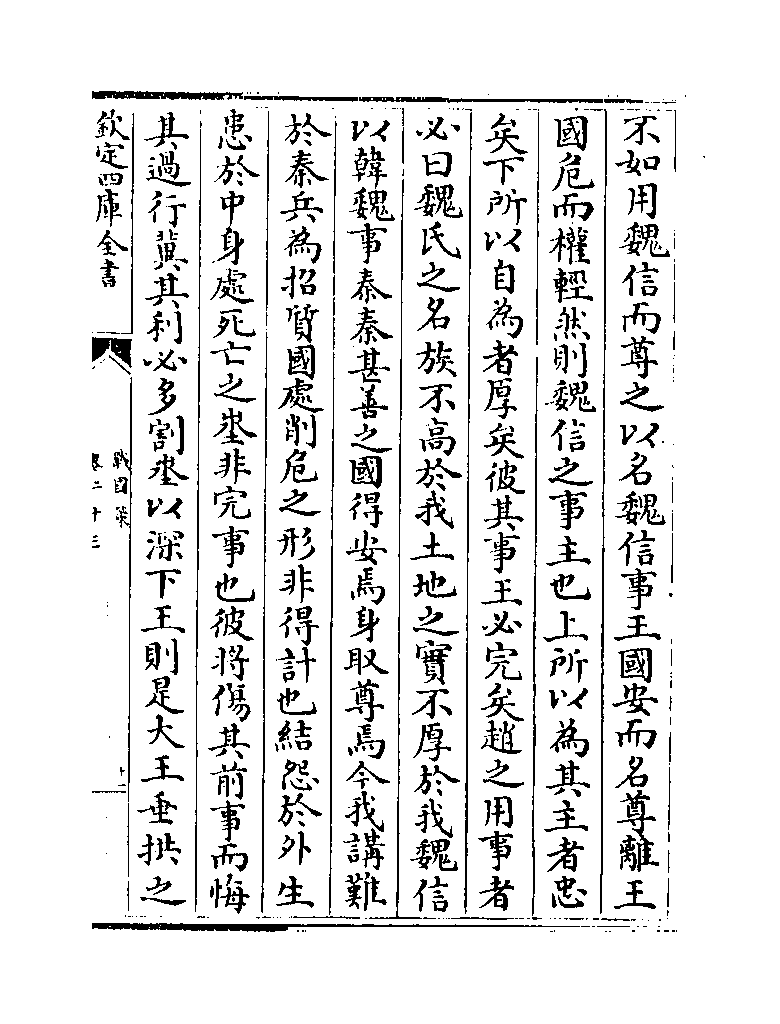 不如用魏信而尊之以名魏信事王國安而名尊離王
國危而權輕然則魏信之事主也上所以為其主者忠
矣下所以自為者厚矣彼其事王必完矣趙之用事者
必曰魏氏之名族不高於我土地之實不厚於我魏信
以韓魏事秦秦甚善之國得安焉身取尊焉今我講難
於秦兵為招質國處削危之形非得計也結怨於外生
患於中身處死亡之埊非完事也彼將傷其前事而悔
其過行冀其利必多割埊以深下王則是大王垂拱之
欽定四庫全書
戰國策
卷二十三
十一